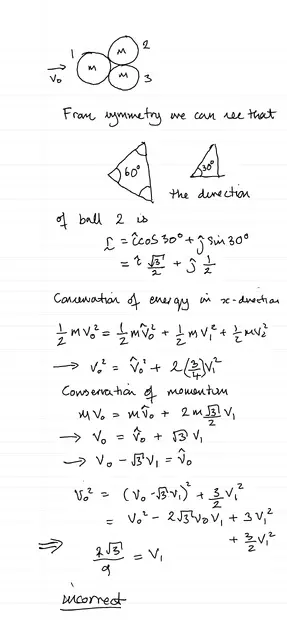 1 M M 2
V₀ M 3
From symmetry we can see that
60° 30°
the direction
of ball 2 is
r̂ = îcos30° + ĵsin30°
= î √3/2 + ĵ 1/2
Conservation of energy in x-direction
1/2 mV₀² = 1/2 mV̂₀² + 1/2 mV₁² + 1/2 mV₂²
→ V₀² = V̂₀² + 2(3/4)V₁²
Conservation of momentum
mV₀ = mV̂₀ + 2m √3/2 V₁
→ V₀ = V̂₀ + √3 V₁
→ V₀ - √3V₁ = V̂₀
V₀² = (V₀ - √3V₁)² + 3/2 V₁²
= V₀² - 2√3V₀V₁ + 3V₁²
+ 3/2 V₁²
⇒ 2√3/9 = V₁
incorrect